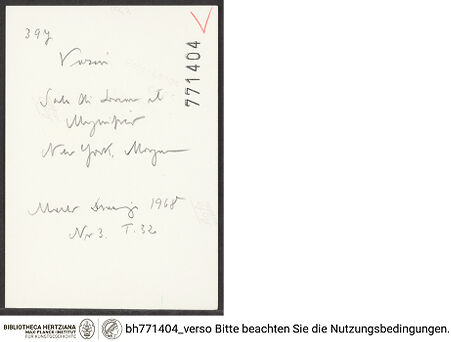 397
771404
Vasari
Sala di Lorenzo il
Magnifico
New York, Morgan
Master Drawings 1968
Nr 3. T. 32
BIBLIOTHECA HERTZIANA
MAX-PLANCK-INSTITUT
FÜR KUNSTGESCHICHTE
bh771404_verso Bitte beachten Sie die Nutzungsbedingungen.